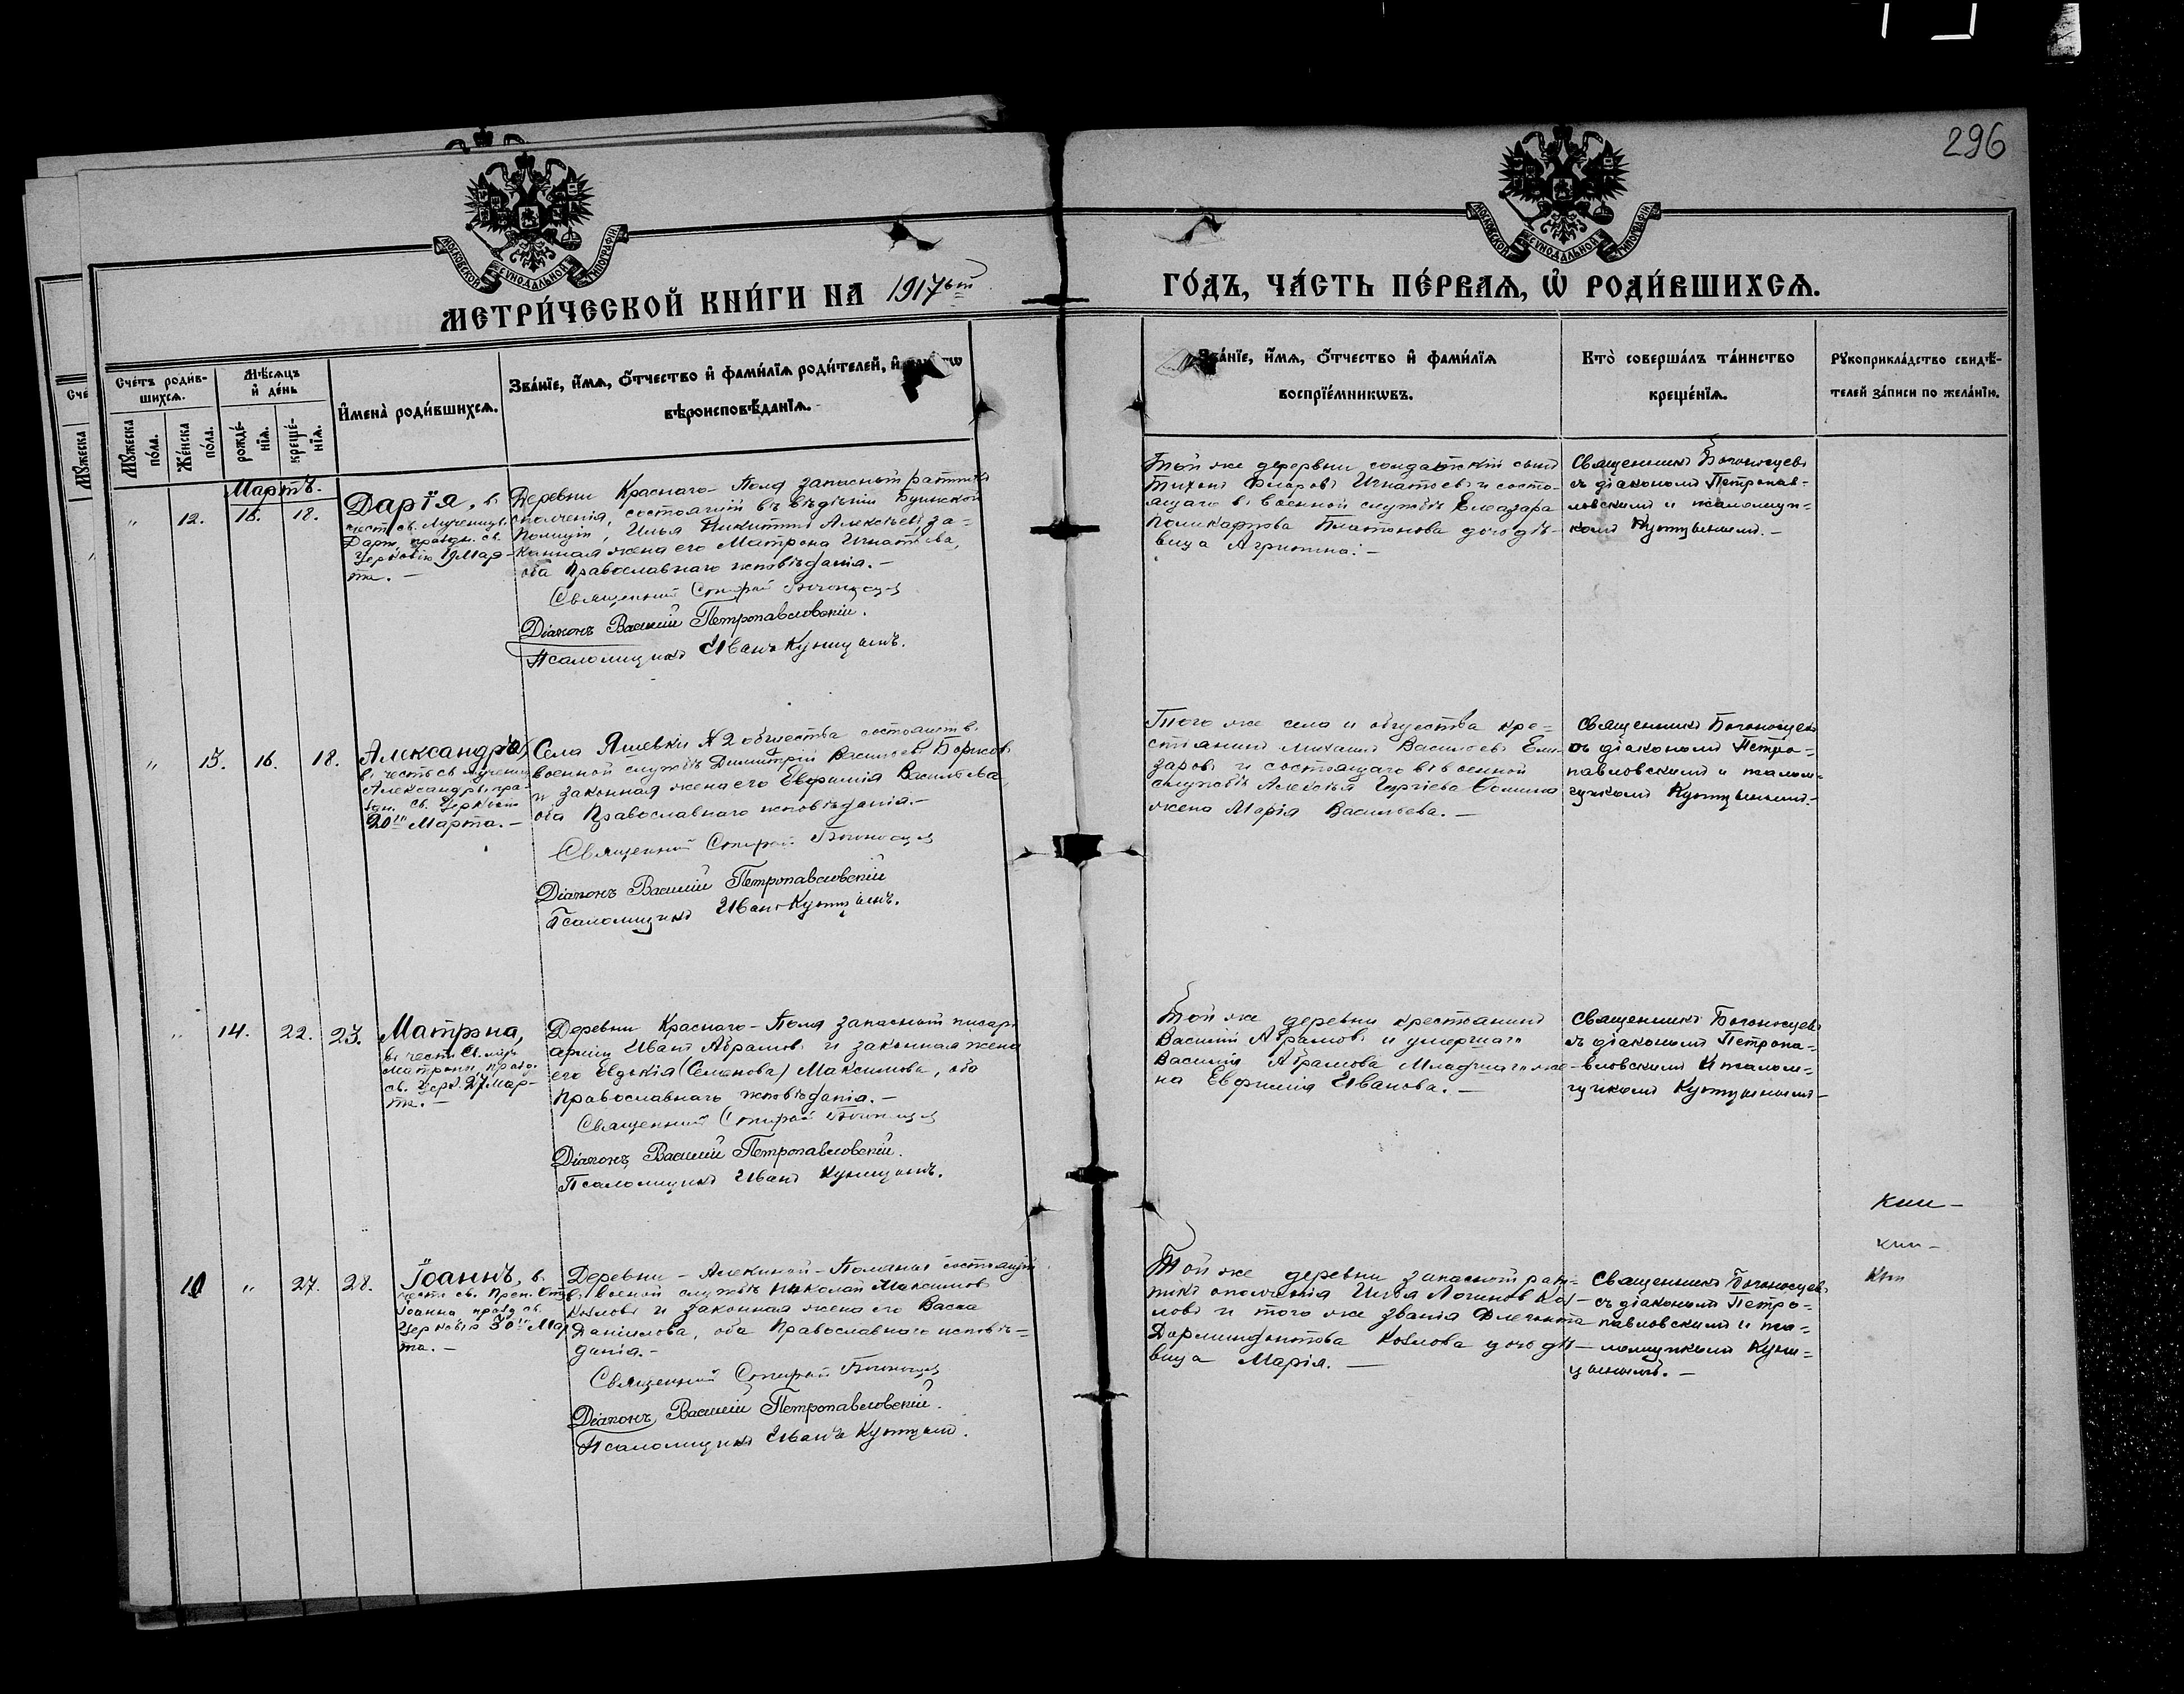 296
МОСКОВСКОЙ СѴНОДАЛЬНОЙ ТИПОГРАФІИ
МОСКОВСКОЙ СѴНОДАЛЬНОЙ ТИПОГРАФІИ
МЕТРИ́ЧЕСКОЙ КНИ́ГИ НА 1917ый
ГО́ДЪ, ЧА́СТЬ ПЕ́РВАѦ, Ѡ҆ РОДИ́ВШИХСѦ.
Сче́тъ роди́в-
шихсѧ.
Мꙋ́жеска
по́ла.
Же́нска
по́ла.
Мѣ́сѧцъ
и҆ де́нь
рожде́-
нїѧ.
креще́-
нїѧ.
И҆мена̀ роди́вшихсѧ.
Зва́нїе, и҆́мѧ, ѻ҆́тчество и҆ фами́лїѧ роди́телей, и҆
вѣроисповѣ́данїѧ.
Зва́нїе, и҆́мѧ, ѻ҆́тчество и҆ фами́лїѧ
воспрїе́мникѡвъ.
Кто̀ соверша́лъ та́инство
креще́нїѧ.
Рꙋкоприкла́дство свидѣ́-
телей за́писи по жела́нїю.
Мартъ.
" 12. 16. 18.
Дарія, в
честь св. Мученицы
Дарiи, праздн. св.
Церковію 19 Мар-
та. –
Деревни Краснаго-Поля запасный ратникъ
ополченія, состоящій въ вѣдѣніи Буинской
Полиціи, Илья Никитинъ Алексѣевъ, за-
конная жена его Матрона Игнатьева,
оба Православнаго исповѣданія. –
Священникъ Богоносцев
Діаконъ Василій Петропавловскій.
Псаломщикъ Иванъ Купцынъ.
Той же деревни солдатскій сынъ
Тихонъ Игнатьевъ и состо-
ящаго въ военной службѣ Елеазара
Поликарпова Платонова дочь дѣ-
вица Агрипина. –
Священникъ Богоносцевъ
съ діакономъ Петропав-
ловскимъ и псаломщи-
комъ Купцынымъ. –
" 13. 16. 18.
Александра,
въ честь св. мучениц
Александры, пра-
здн. св. Церковію
20го Марта. –
Села Яшевки № 2 общества состоящій въ
военной службѣ Димитрій Васильевъ Борисовъ
и законная жена его Евфимія Васильева,
оба Православнаго исповѣданія. –
Священникъ Богоносцев
Діаконъ Василій Петропавловскій
Псаломщикъ Иванъ Купцынъ.
Того же села и общества кре-
стьянинъ Михаилъ Васильевъ Ели-
заровъ и состоящаго въ военной
службѣ Алексѣя Фомина
жена Марія Васильева. –
Священникъ Богоносцевъ
съ діакономъ Петро-
павловскимъ и псалом-
щикомъ Купцынымъ. –
" 14. 22. 23.
Матрона,
въ честь св. мцы
Матроны, празд.
св. Церк. 27 Мар-
та. –
Деревни Краснаго-Поля запасный писарь
арміи Иванъ Абрамовъ и законная жена
его Евдокія (Семенова) Максимова, оба
Православнаго исповѣданія. –
Священникъ Богоносцев
Діаконъ Василій Петропавловскій.
Псаломщикъ Иванъ Купцынъ.
Той же деревни крестьянинъ
Василій Абрамовъ и умершаго
Василія Абрамова Младшаго же-
на Евфимія Иванова. –
Священникъ Богоносцевъ
съ діакономъ Петропа-
вловскимъ и псалом-
щикомъ Купцынымъ –
10 " 27. 28.
Іоаннъ, въ
честь св. Преп.
Іоанна, празд. св.
Церковію 30го Мар
та. –
Деревни – Алекиной – Поляны состоящій
въ военной службѣ Николай Максимов
Козловъ и законная жена его Васса
Даніилова, оба Православнаго исповѣ-
данія. –
Священникъ Богоносцев
Діаконъ Василій Петропавловскій.
Псаломщикъ Иванъ Купцынъ.
Той же деревни запасной рат-
никъ ополченія Илья Логинов Коз-
ловъ и того же званія Флегонта
Козлова дочь дѣ-
вица Марія. –
Священникъ Богоносцевъ
съ діакономъ Петро-
павловскимъ и пса-
ломщикомъ Куп-
цынымъ. –